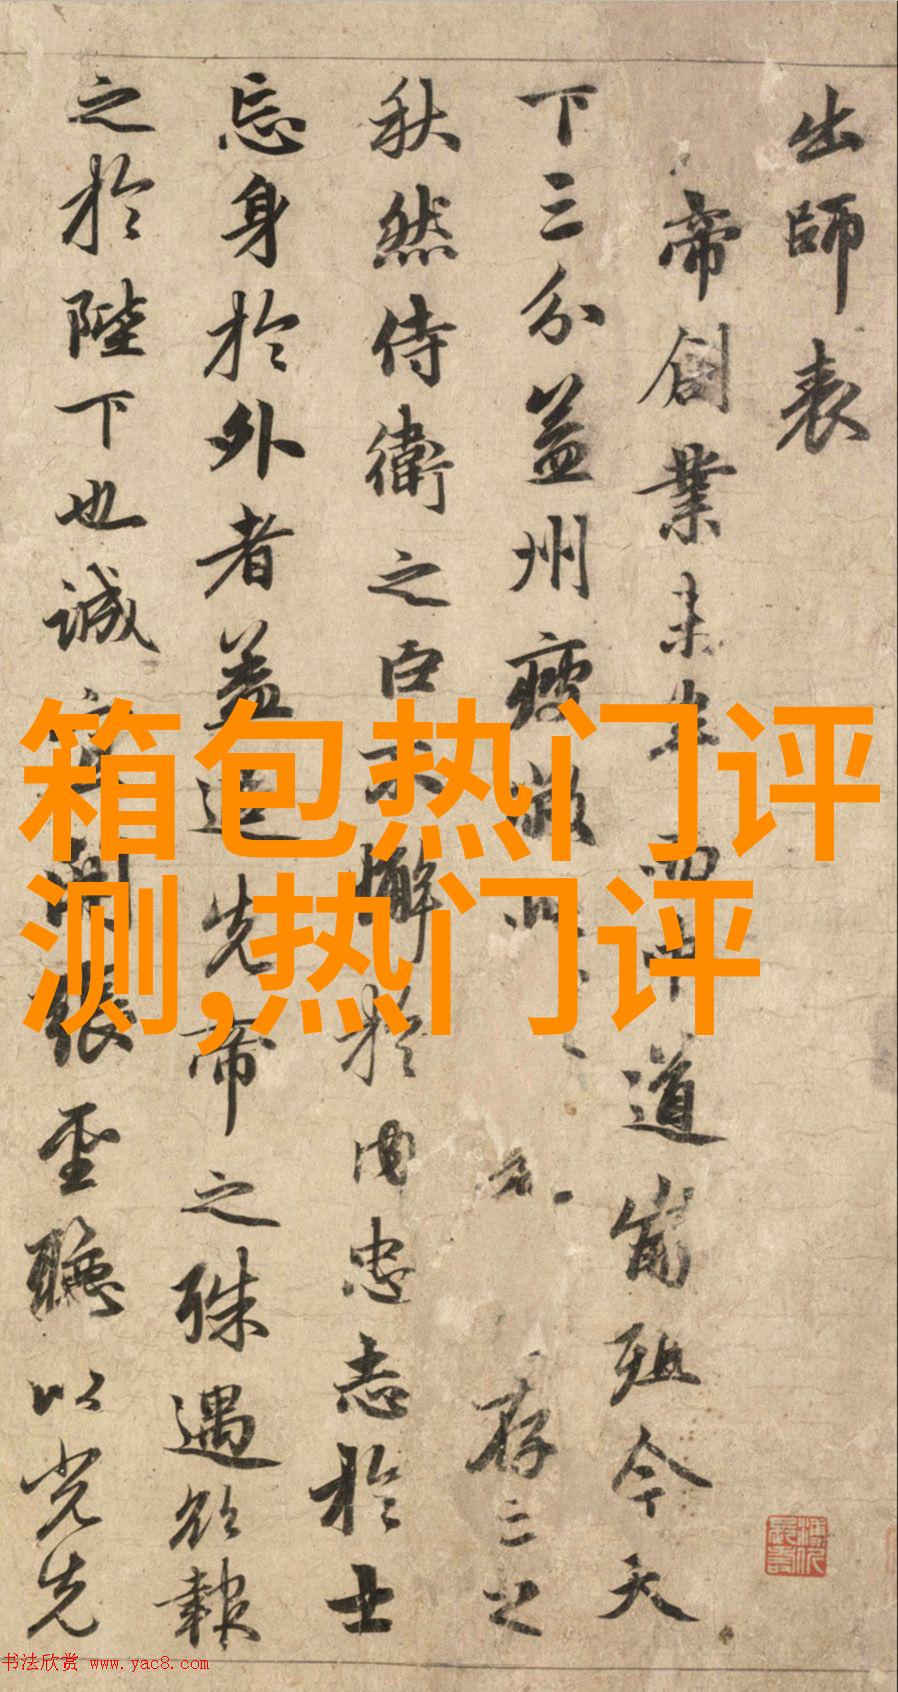 出師表
帝創業未半而中道崩殂今天
下三分益州疲敝此存之
秋然侍衛之臣不懈於内忠志於士
忘身於外者蓋追先帝之殊遇欲報
之於陛下也誠宜開張聖聽以光先
箱包热门评
测,热门评
书法欣赏 www.yac8.com